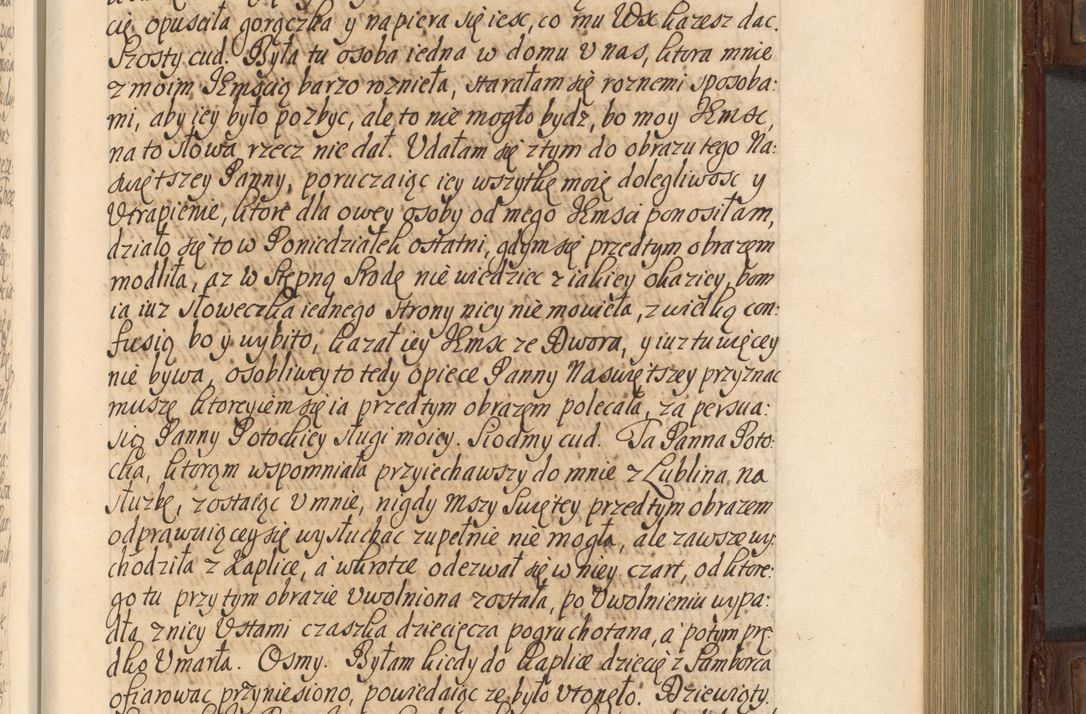 cię opusciła gorączka y napiera się iesc, co mu Wsc każesz dac.
Szosty cud. Była tu osoba iedna w domu U nas, ktora mnie
z moim JEmscią barzo roznieła, starałam się roznemi sposoba:
mi, aby iey było pozbyc, ale to nie mogło bydz, bo moy JEmsc,
na to słowa rzecz nie dał. Udałam się ztym do obrazu tego Na:
świętszey Panny, poruczaiąc iey wszytkę moię dolegliwosc y
Utrapienie, ktore dla owey osoby od mego JEmsci ponosiłam,
działo się to w Poniedziałek ostatni, gdym się przedtym obrazem
modliła, az w Stępną Srodę nie wiedziec z iakiey okaziey, bom
ia iuz słoweczka iednego strony niey nie mowieła, z wielką con:
fusią bo y wybito, kazał iey JEmsc ze Dwora, y iuz tu więcey
nie bywa, osobliwey to tedy opiece Panny Naswiętszey przyznac
muszę ktoreyiem się ia przedtym obrazem polecała, za persua:
sią Panny Potockiey sługi moiey. Siodmy cud. Ta Panna Poto:
cka, ktorąm wspomniała przyiechawszy do mnie z Lublina, na
służbę, zostaiąc U mnie, nigdy Mszy Swiętey przedtym obrazem
odprawuiącey się wysłuchac zupełnie nie mogła, ale zawsze wy:
chodziła z Kaplice, a wkrotce odezwał się w niey czart, od ktore:
go tu przy tym obrazie Uwolniona została, po Uwolnieniu wypa:
dła z niey Ustami czaszka dziecięcza pogruchotana, a potym prę:
dko Umarła. Osmy. Byłam kiedy do Kaplice dziecię z Samborca
ofiarowac przyniesiono, powiedaiąc ze było Utonęło. Dziewiąty.